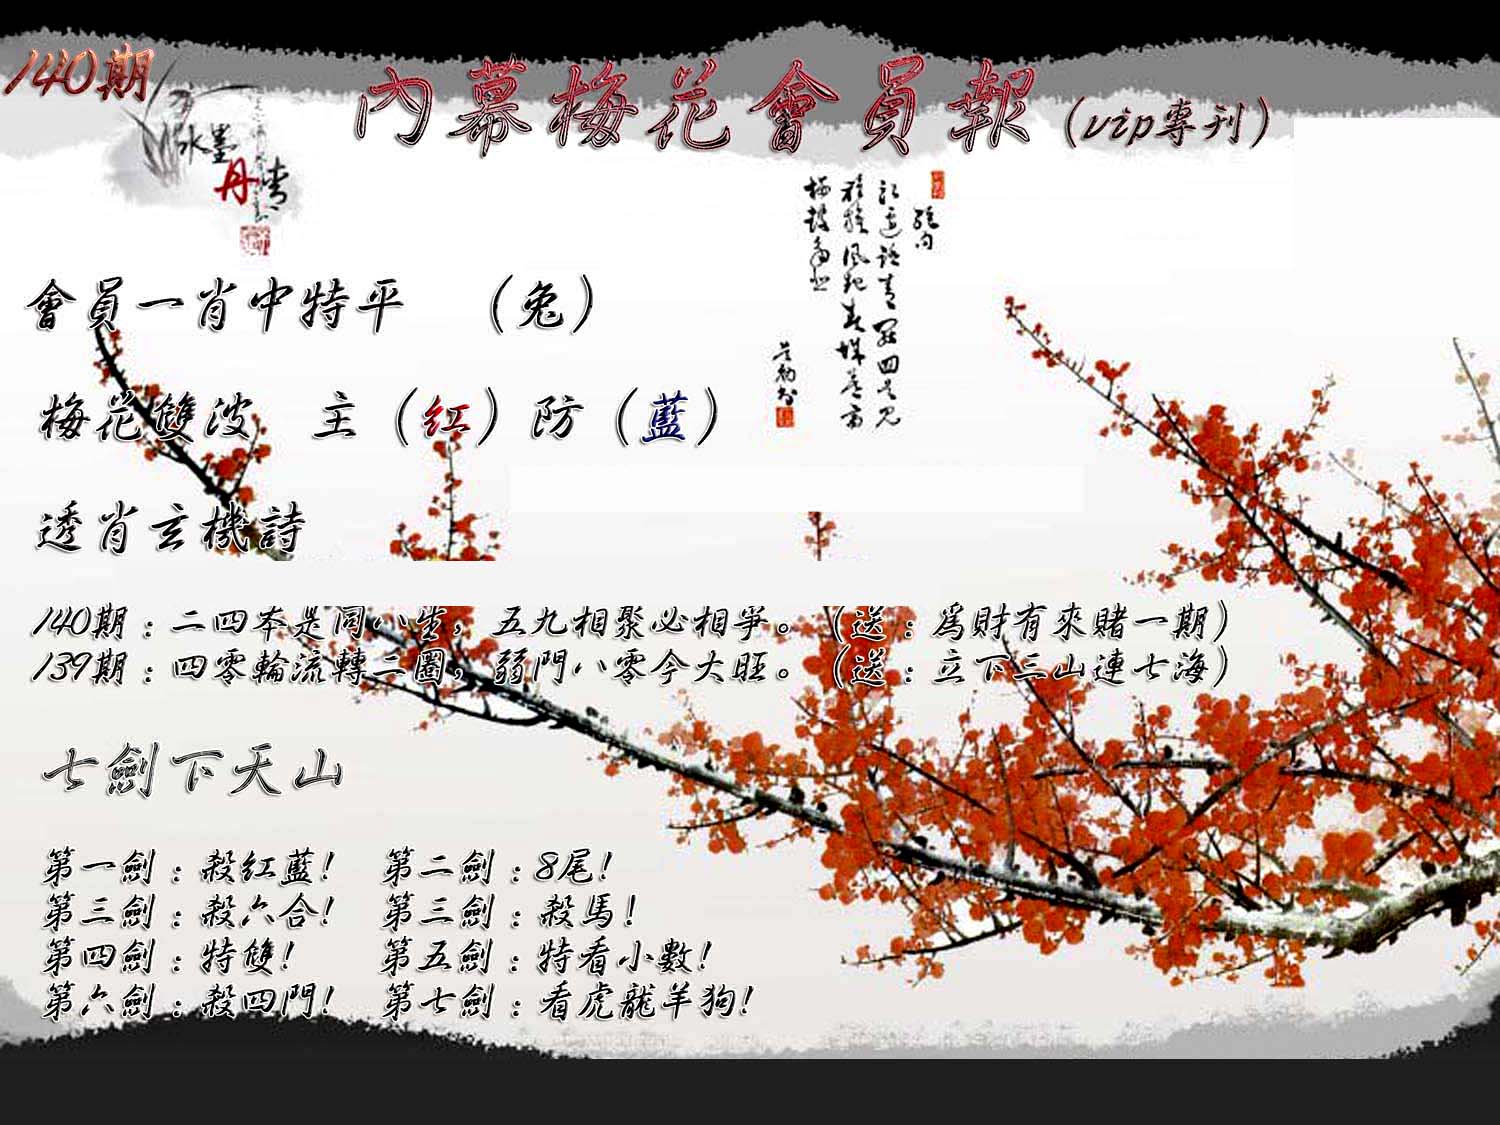 140期
內幕梅花會員報(vip專刊)
水墨
丹青
絕句
會員一肖中特平 (兔)
梅花雙波 主(紅)防(藍)
透肖玄機詩
140期:二四本是同八生,五九相聚必相爭。(送:為財有來賭一期)
139期:四零輪流轉二圈,弱門八零今大旺。(送:立下三山連七海)
七劍下天山
第一劍:殺紅藍! 第二劍:8尾!
第三劍:殺六合! 第三劍:殺馬!
第四劍:特雙! 第五劍:特看小數!
第六劍:殺四門! 第七劍:看虎龍羊狗!